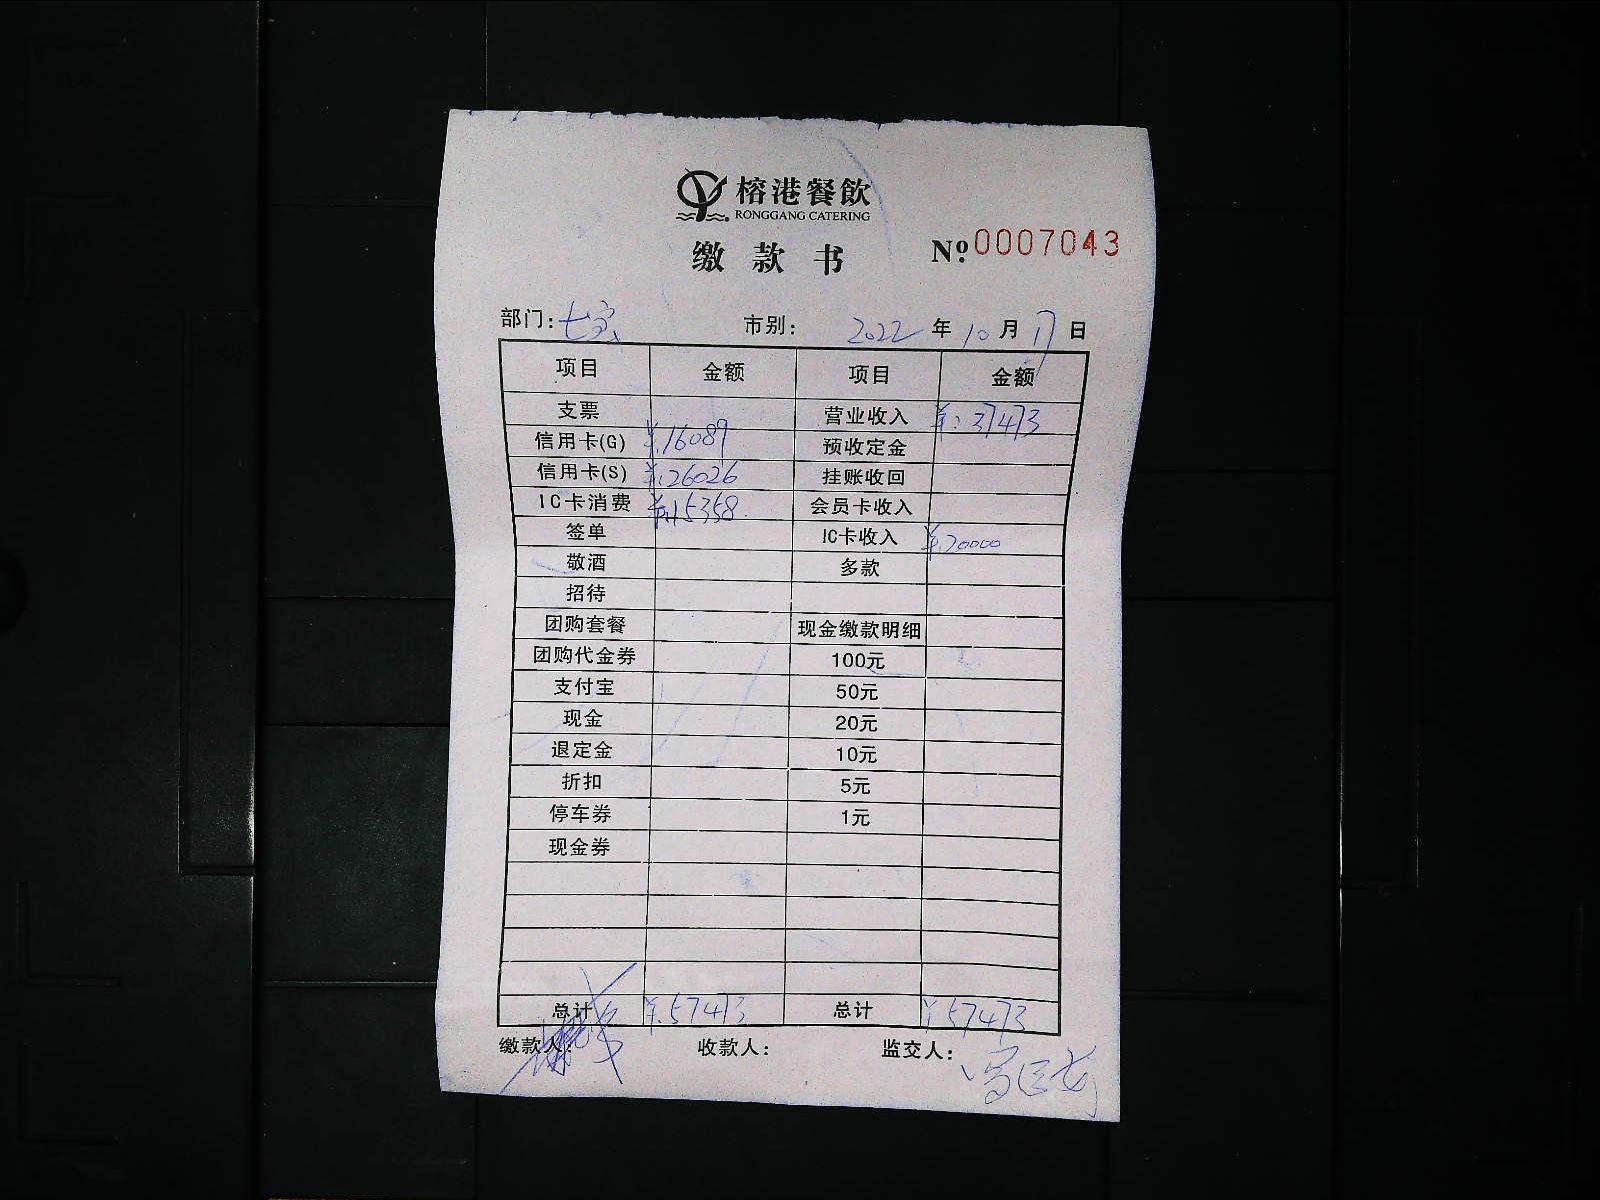 榕港餐飲
RONGGANG CATERING
缴款书 №:0007043
部门:七宝 市别: 2022年10月17日
项目 金额 项目 金额
支票 营业收入 ¥:37473
信用卡(G) ¥.16089 预收定金
信用卡(S) ¥.26026 挂账收回
IC卡消费 ¥.15358. 会员卡收入
签单 IC卡收入 ¥.20000
敬酒 多款
招待
团购套餐 现金缴款明细
团购代金券 100元
支付宝 50元
现金 20元
退定金 10元
折扣 5元
停车券 1元
现金券
总计 ¥.57473 总计 ¥57473
缴款人: 收款人: 监交人: